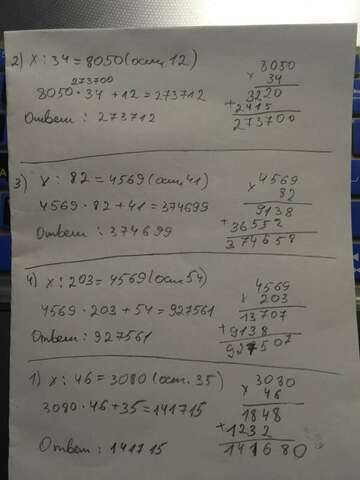 2) x : 34 = 8050 (ост. 12)
273700
8050 · 34 + 12 = 273712
Ответ : 273712
8050
x 34
3220
+ 2415
273700
3) x : 82 = 4569 (ост. 41)
4569 · 82 + 41 = 374699
Ответ : 374699
4569
x 82
9138
+ 36552
374658
4) x : 203 = 4569 (ост 54)
4569 · 203 + 54 = 927561
Ответ : 927561
4569
x 203
13707
+ 9138
927507
1) x : 46 = 3080 (ост. 35)
3080 · 46 + 35 = 141715
Ответ : 141715
3080
x 46
1848
+ 1232
141680